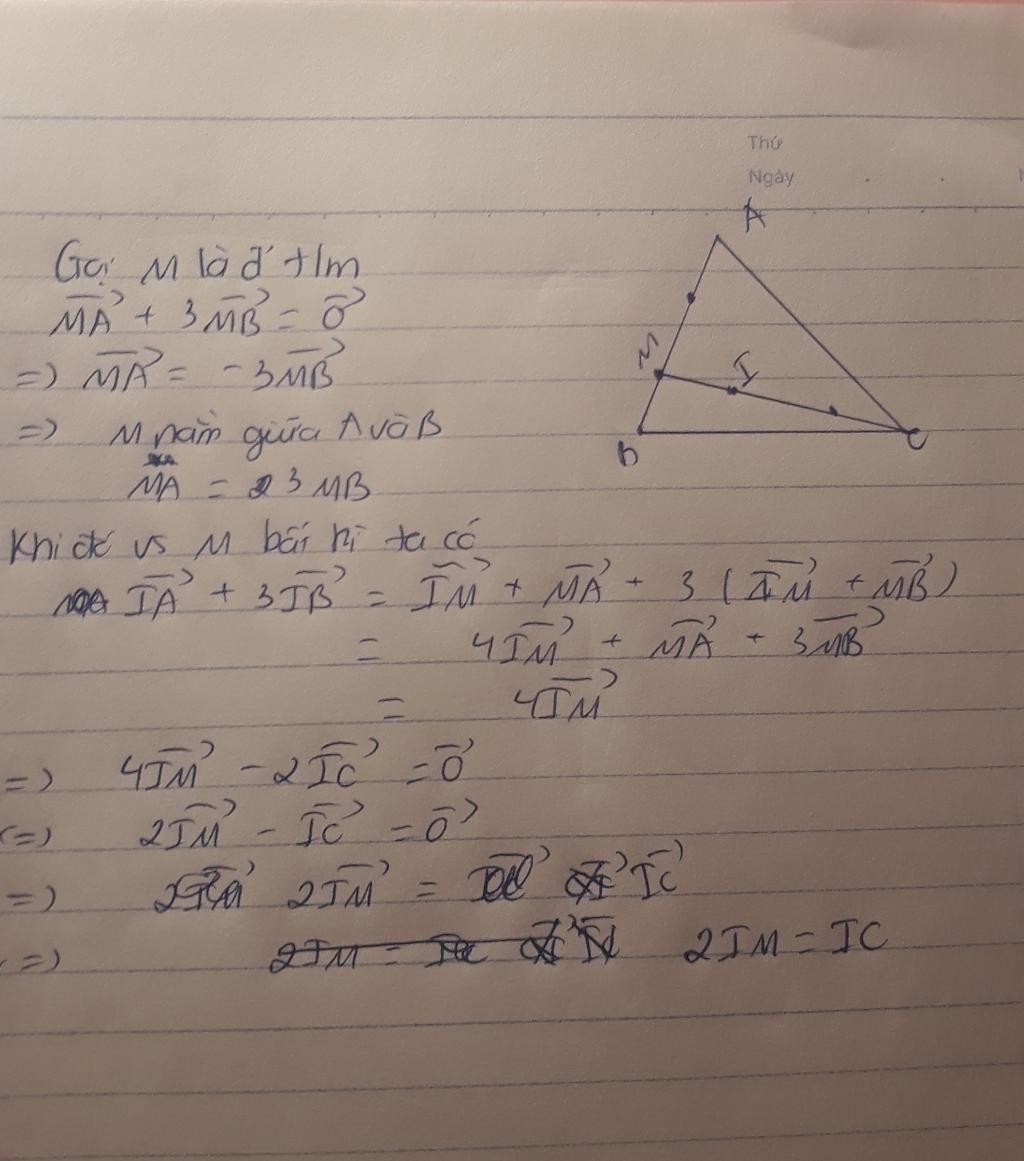 Thứ
Ngày
A
M
I
B
C
Gọi M là đ' t/m
$\overrightarrow{MA} + 3\overrightarrow{MB} = \vec{0}$
=) $\overrightarrow{MA} = -3\overrightarrow{MB}$
=) M nằm giữa A và B
MA = 3 MB
Khi đó vs M bất kì ta có
$\overrightarrow{IA} + 3\overrightarrow{IB} = \overrightarrow{IM} + \overrightarrow{MA} + 3(\overrightarrow{IM} + \overrightarrow{MB})$
= $4\overrightarrow{IM} + \overrightarrow{MA} + 3\overrightarrow{MB}$
= $4\overrightarrow{IM}$
=) $4\overrightarrow{IM} - 2\overrightarrow{IC} = \vec{0}$
(=) $2\overrightarrow{IM} - \overrightarrow{IC} = \vec{0}$
=) $2\overrightarrow{IM} = \overrightarrow{IC}$
=) 2IM = IC